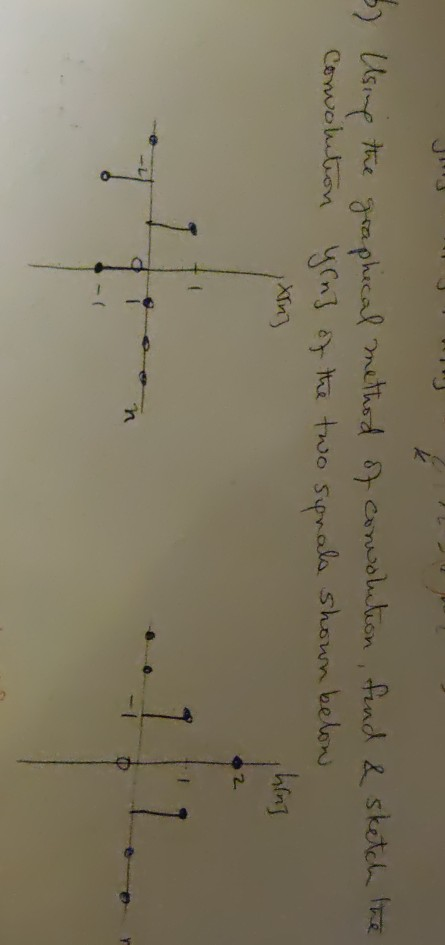 b) Using the graphical method of convolution, find & sketch the
convolution y[n] of the two signals shown below
x[n]
1
-2
0
1
n
-1
h[n]
2
1
-1
0
k